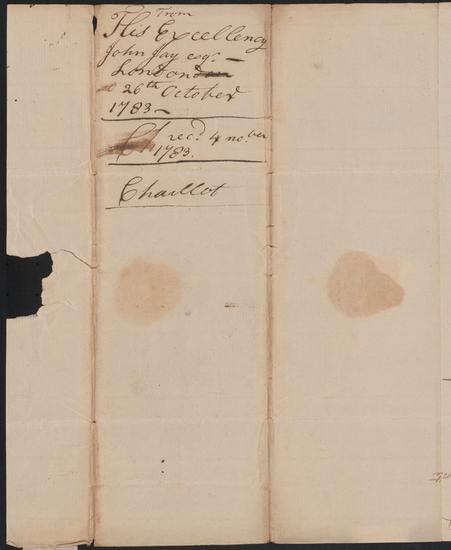 From
His Excellency
John Jay esqr. —
London
26th October
1783 —
recd 4 nober
1783.
Chaillot